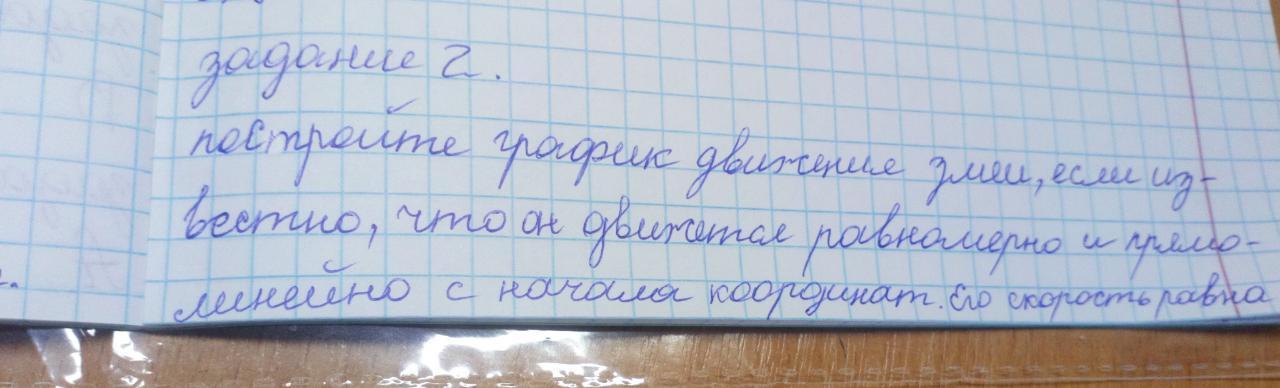 задание 2.
постройте график движения змеи, если из-
вестно, что он движется равномерно и прямо-
линейно с начала координат. Его скорость равна